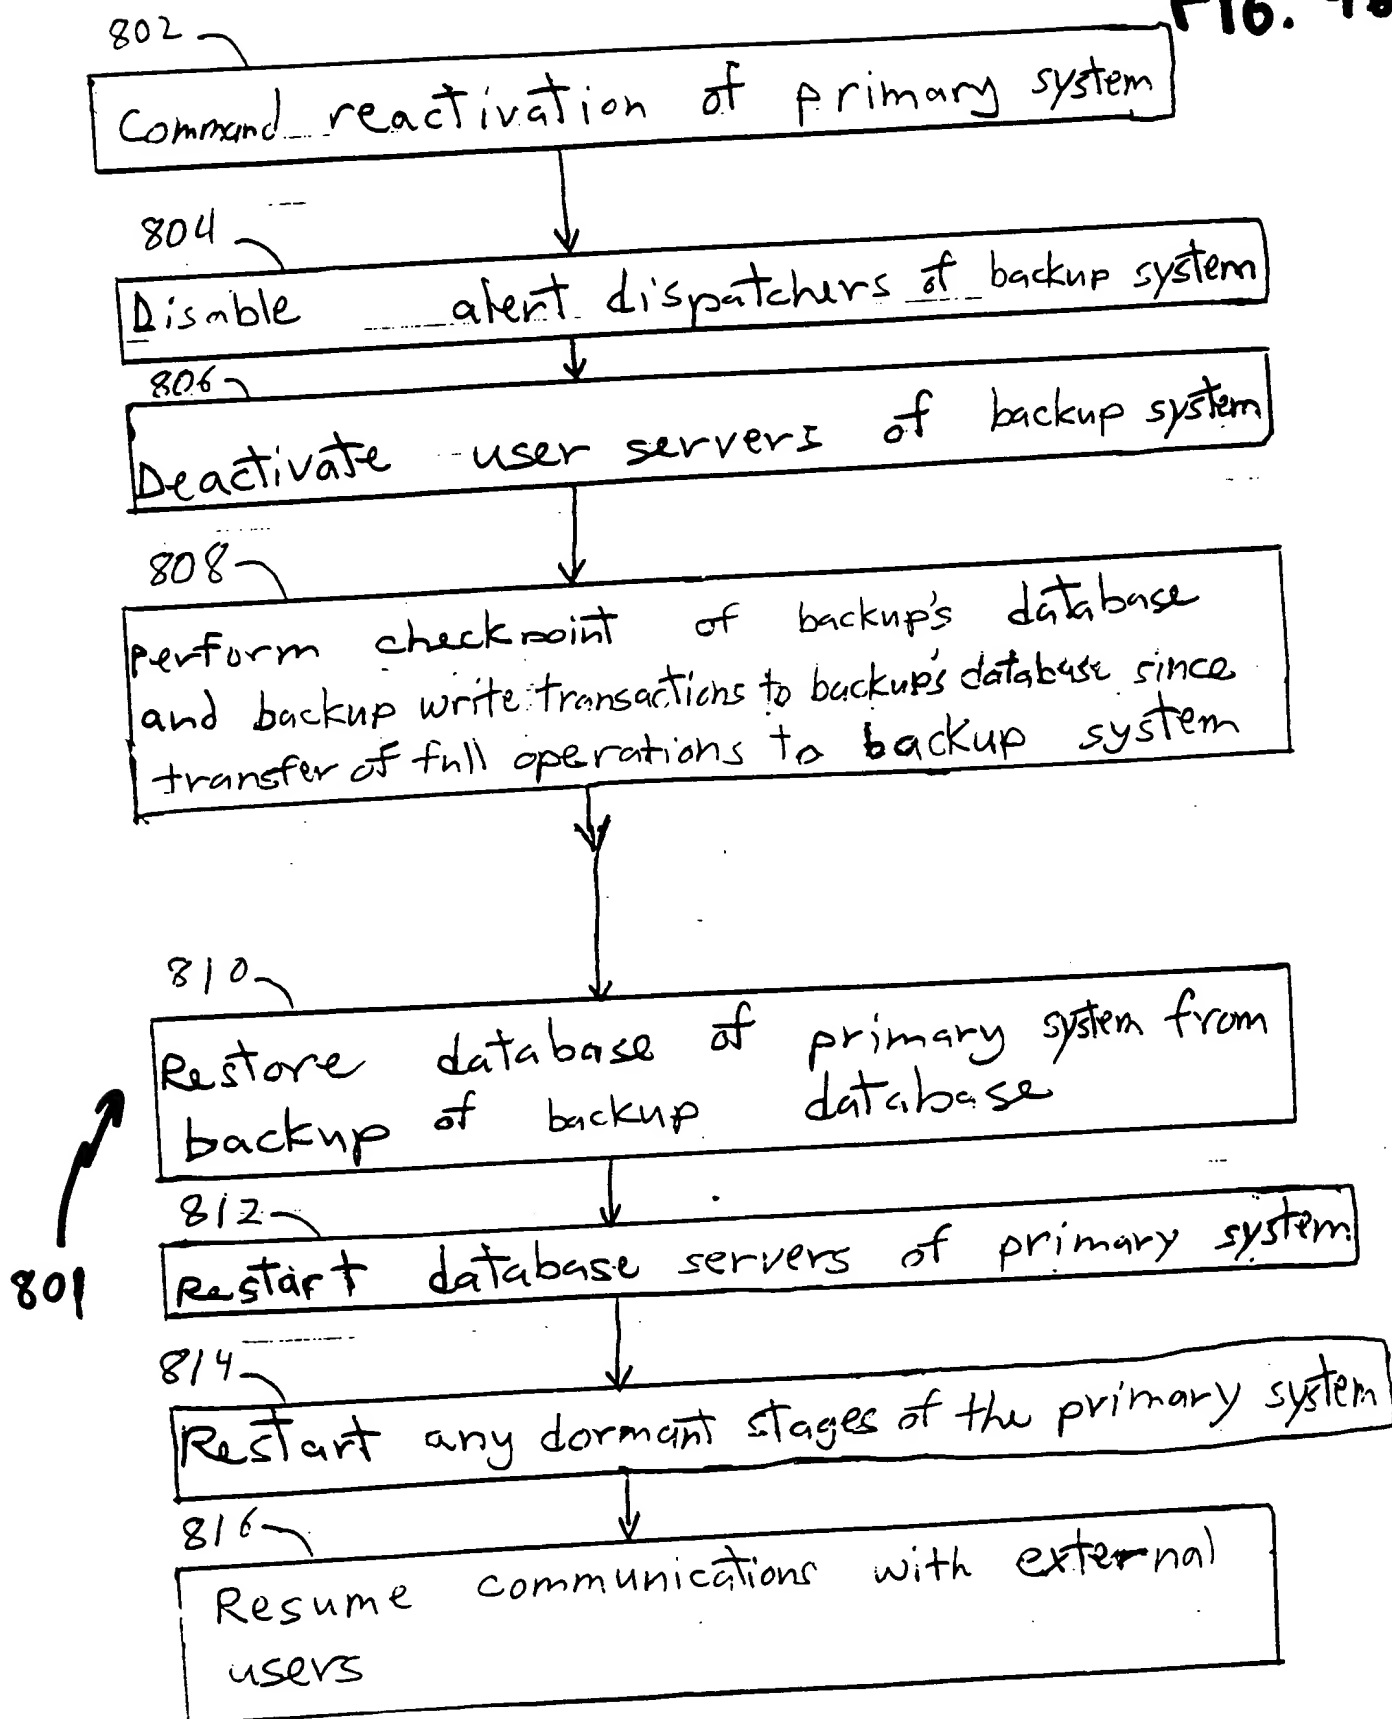 FIG.
802
Command reactivation of primary system
804
Disable alert dispatchers of backup system
806
Deactivate user servers of backup system
808
Perform checkpoint of backup's database
and backup write transactions to backup's database since
transfer of full operations to backup system
810
Restore database of primary system from
backup of backup database
801
812
Restart database servers of primary system
814
Restart any dormant stages of the primary system
816
Resume communications with external
users